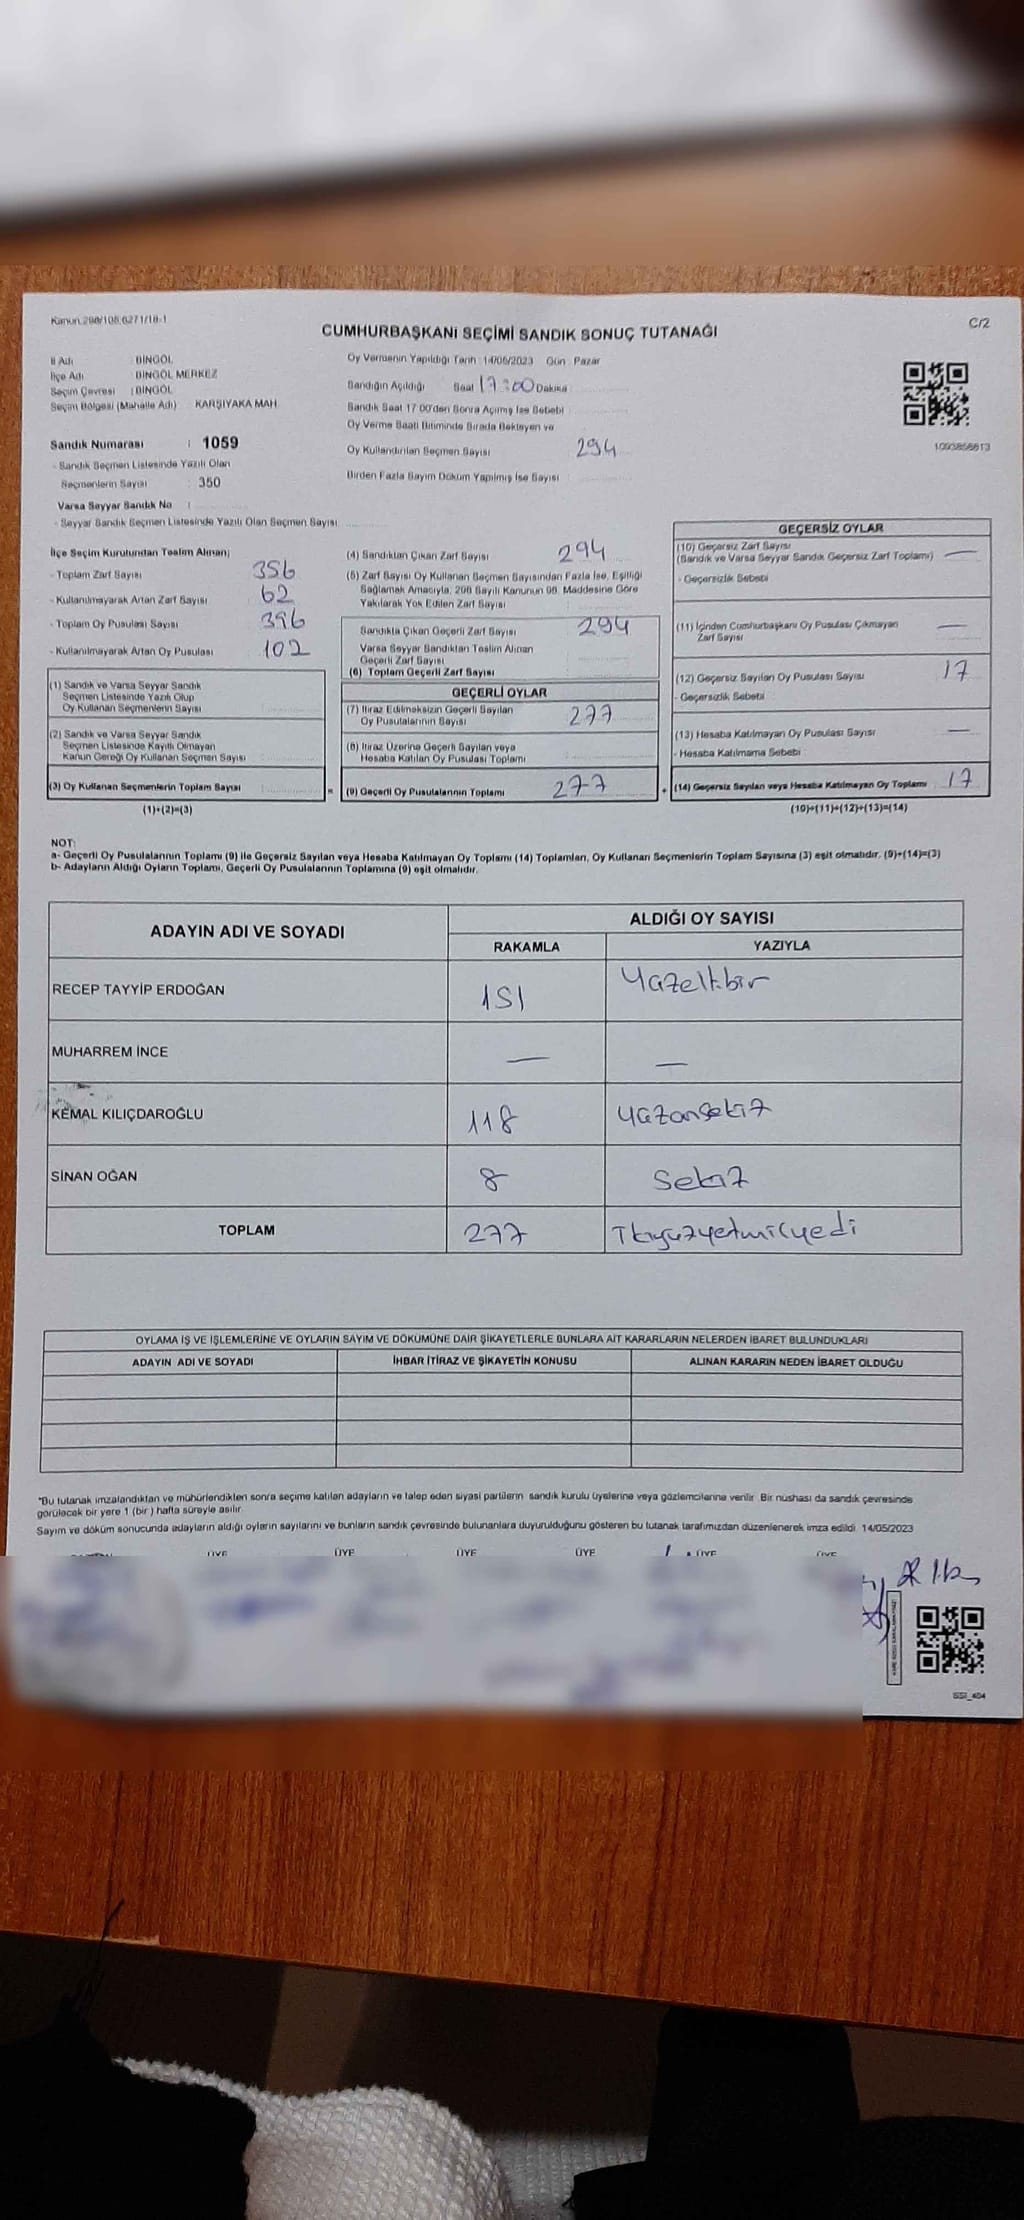 Kanun.298/105.6271/18-1
C/2
CUMHURBAŞKANI SEÇİMİ SANDIK SONUÇ TUTANAĞI
İl Adı : BİNGÖL
İlçe Adı : BİNGÖL MERKEZ
Seçim Çevresi : BİNGÖL
Seçim Bölgesi (Mahalle Adı) KARŞIYAKA MAH.
Sandık Numarası : 1059
- Sandık Seçmen Listesinde Yazılı Olan
Seçmenlerin Sayısı : 350
Varsa Seyyar Sandık No :
- Seyyar Sandık Seçmen Listesinde Yazılı Olan Seçmen Sayısı
Oy Vermenin Yapıldığı Tarih : 14/05/2023 Gün : Pazar
Sandığın Açıldığı Saat 17:00 Dakika
Sandık Saat 17:00'den Sonra Açılmış İse Sebebi
Oy Verme Saati Bitiminde Sırada Bekleyen ve
Oy Kullandırılan Seçmen Sayısı 294
Birden Fazla Sayım Döküm Yapılmış İse Sayısı
1093856613
İlçe Seçim Kurulundan Teslim Alınan;
- Toplam Zarf Sayısı 356
- Kullanılmayarak Artan Zarf Sayısı 62
- Toplam Oy Pusulası Sayısı 396
- Kullanılmayarak Artan Oy Pusulası 102
(1) Sandık ve Varsa Seyyar Sandık
Seçmen Listesinde Yazılı Olup
Oy Kullanan Seçmenlerin Sayısı
(2) Sandık ve Varsa Seyyar Sandık
Seçmen Listesinde Kayıtlı Olmayan
Kanun Gereği Oy Kullanan Seçmen Sayısı
(3) Oy Kullanan Seçmenlerin Toplam Sayısı =
(1)+(2)=(3)
(4) Sandıktan Çıkan Zarf Sayısı 294
(5) Zarf Sayısı Oy Kullanan Seçmen Sayısından Fazla İse, Eşitliği
Sağlamak Amacıyla, 298 Sayılı Kanunun 98. Maddesine Göre
Yakılarak Yok Edilen Zarf Sayısı
Sandıkta Çıkan Geçerli Zarf Sayısı 294
Varsa Seyyar Sandıktan Teslim Alınan
Geçerli Zarf Sayısı
(6) Toplam Geçerli Zarf Sayısı
GEÇERLİ OYLAR
(7) İtiraz Edilmeksizin Geçerli Sayılan
Oy Pusulalarının Sayısı 277
(8) İtiraz Üzerine Geçerli Sayılan veya
Hesaba Katılan Oy Pusulası Toplamı
(9) Geçerli Oy Pusulalarının Toplamı 277 +
GEÇERSİZ OYLAR
(10) Geçersiz Zarf Sayısı
(Sandık ve Varsa Seyyar Sandık Geçersiz Zarf Toplamı) —
- Geçersizlik Sebebi
(11) İçinden Cumhurbaşkanı Oy Pusulası Çıkmayan
Zarf Sayısı —
(12) Geçersiz Sayılan Oy Pusulası Sayısı 17
- Geçersizlik Sebebi
(13) Hesaba Katılmayan Oy Pusulası Sayısı —
- Hesaba Katılmama Sebebi
(14) Geçersiz Sayılan veya Hesaba Katılmayan Oy Toplamı 17
(10)+(11)+(12)+(13)=(14)
NOT:
a- Geçerli Oy Pusulalarının Toplamı (9) ile Geçersiz Sayılan veya Hesaba Katılmayan Oy Toplamı (14) Toplamları, Oy Kullanan Seçmenlerin Toplam Sayısına (3) eşit olmalıdır. (9)+(14)=(3)
b- Adayların Aldığı Oyların Toplamı, Geçerli Oy Pusulalarının Toplamına (9) eşit olmalıdır.
ADAYIN ADI VE SOYADI
ALDIĞI OY SAYISI
RAKAMLA YAZIYLA
RECEP TAYYİP ERDOĞAN 151 Yüzellibir
MUHARREM İNCE — —
KEMAL KILIÇDAROĞLU 118 yüzonsekiz
SİNAN OĞAN 8 sekiz
TOPLAM 277 İkiyüzyetmişyedi
OYLAMA İŞ VE İŞLEMLERİNE VE OYLARIN SAYIM VE DÖKÜMÜNE DAİR ŞİKAYETLERLE BUNLARA AİT KARARLARIN NELERDEN İBARET BULUNDUKLARI
ADAYIN ADI VE SOYADI İHBAR İTİRAZ VE ŞİKAYETİN KONUSU ALINAN KARARIN NEDEN İBARET OLDUĞU
*Bu tutanak imzalandıktan ve mühürlendikten sonra seçime katılan adayların ve talep eden siyasi partilerin sandık kurulu üyelerine veya gözlemcilerine verilir. Bir nüshası da sandık çevresinde
görülecek bir yere 1 (bir) hafta süreyle asılır.
Sayım ve döküm sonucunda adayların aldığı oyların sayılarını ve bunların sandık çevresinde bulunanlara duyurulduğunu gösteren bu tutanak tarafımızdan düzenlenerek imza edildi. 14/05/2023
ÜYE ÜYE ÜYE ÜYE ÜYE ÜYE
SSI_404